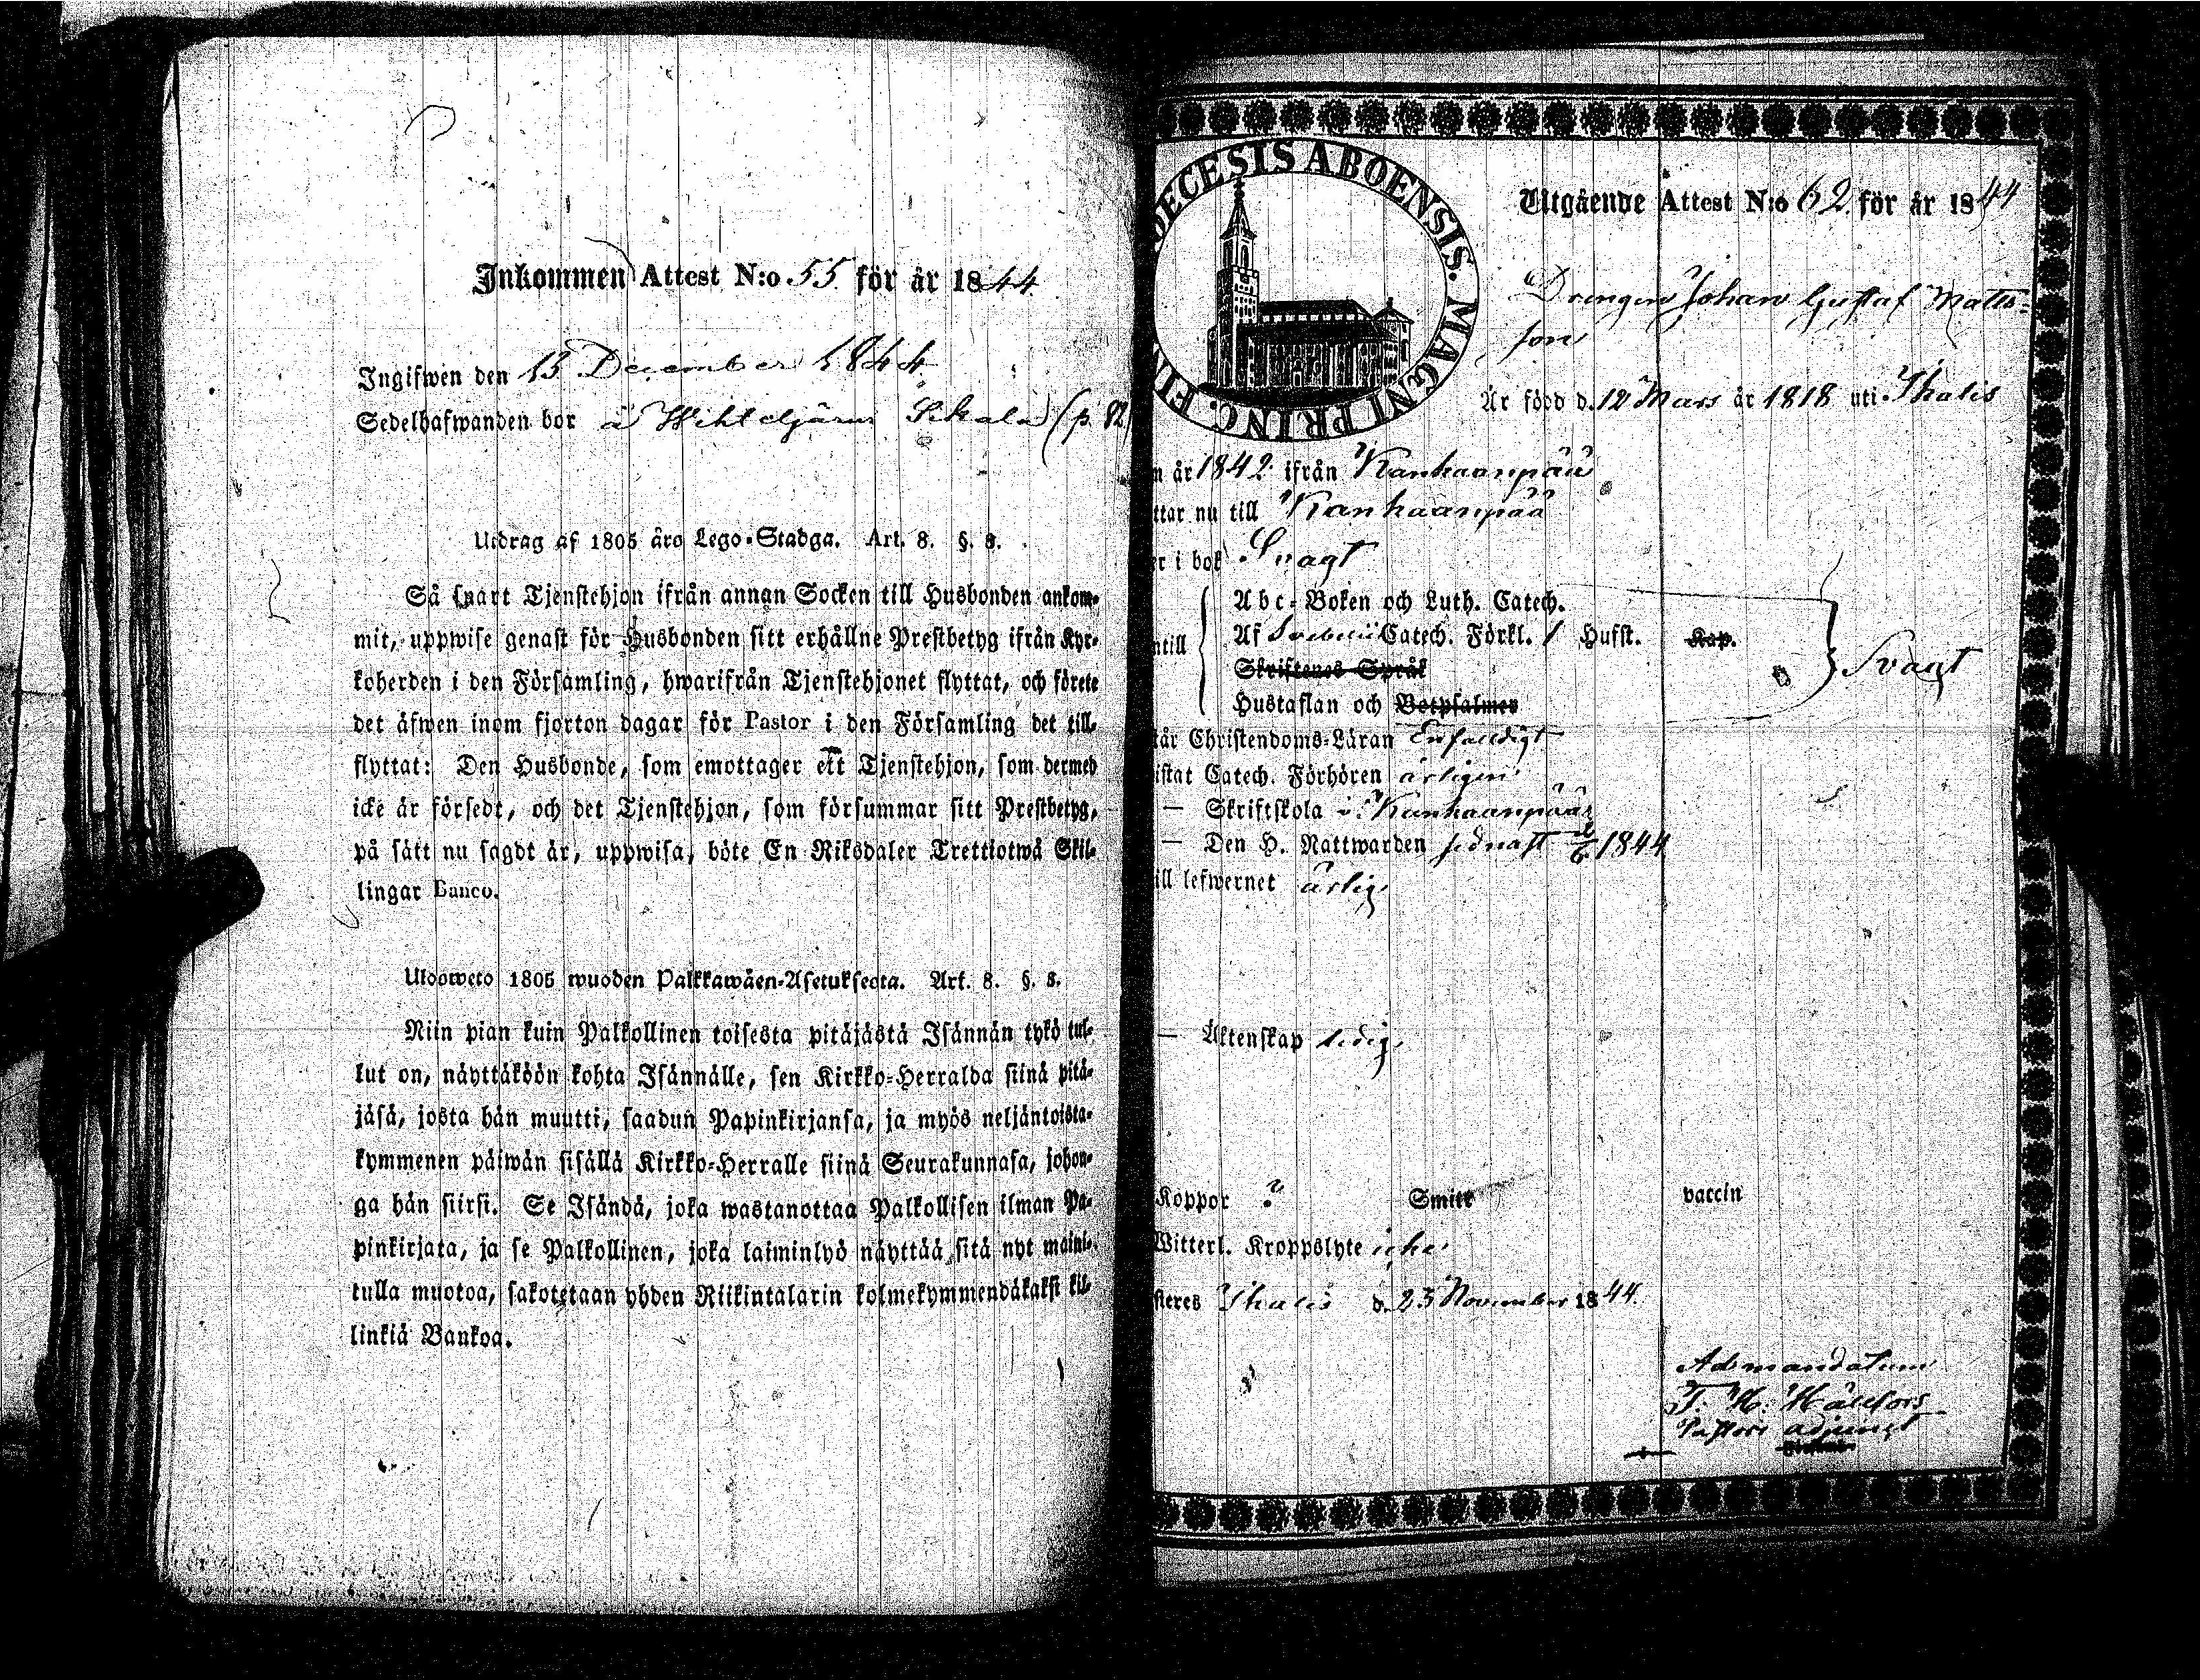 Inkommen Attest N:o 55 för år 1844
Ingifwen den 13 December 1844
Sedelhafwanden bor å (p. 82
Utdrag af 1805 års Lego-Stadga. Art. 8. §. 8.
Så snart Tjenstehjon ifrån annan Socken till Husbonden ankom-
mit, uppwise genast för Husbonden sitt erhållne Prestbetyg ifrån Kyr-
koherden i den Församling, hwarifrån Tjenstehjonet flyttat, och förete
det äfwen inom fjorton dagar för Pastor i den Församling det till-
flyttat: Den Husbonde, som emottager ett Tjenstehjon, som dermed
icke är försedt, och det Tjenstehjon, som försummar sitt Prestbetyg,
på sätt nu sagdt är, uppwisa, böte En Riksdaler Trettiotwå Skil-
lingar Banco.
Ulosweto 1805 wuoden Palkkawäen-Asetuksesta. Art. 8. §. 8.
Niin pian kuin Palkollinen toisesta pitäjästä Isännän tykö tul-
lut on, näyttäköön kohta Isännälle, sen Kirkko-Herralda siinä pitä-
jäsä, josta hän muutti, saadun Papinkirjansa, ja myös neljäntoista-
kymmenen päiwän sisällä Kirkko-Herralle siinä Seurakunnasa, johon-
ga hän siirsi. Se Isändä, joka wastanottaa Palkollisen ilman Pa-
pinkirjata, ja se Palkollinen, joka laiminlyö näyttää sitä nyt maini-
tulla muotoa, sakotetaan yhden Riikintalarin kolmekymmendäkaksi kil-
linkiä Bankoa.
DECESIS ABOENSIS. MAGNI PRINC. FIN
Utgående Attest N:o 62 för år 1844
Drengen Johan Gustaf Matts-
son
Är född d. 12 Mars år 1818 uti Ikalis
m år 1842 ifrån Kankaanpää
ttar nu till Kankaanpää
er i bok Svagt
ntill
Abc-Boken och Luth. Catech.
Af Svebelii Catech. Förkl. / Husst. Kap.
Skriftenes Språk
Hustaflan och Botpsalmer
Svagt
tår Christendoms-Läran Enfaldigt
istat Catech. Förhören årligen
— Skriftskola i Kankaanpää
— Den H. Nattwarden sednast 1844
ill lefwernet ärlig
— Äktenskap ledig
Koppor ? Smitt vaccin
Witterl. Kroppslyte icke
steres Ikalis d. 23 November 1844.
Ad mandatum
T. H. Hällfors
Pastors adjungt